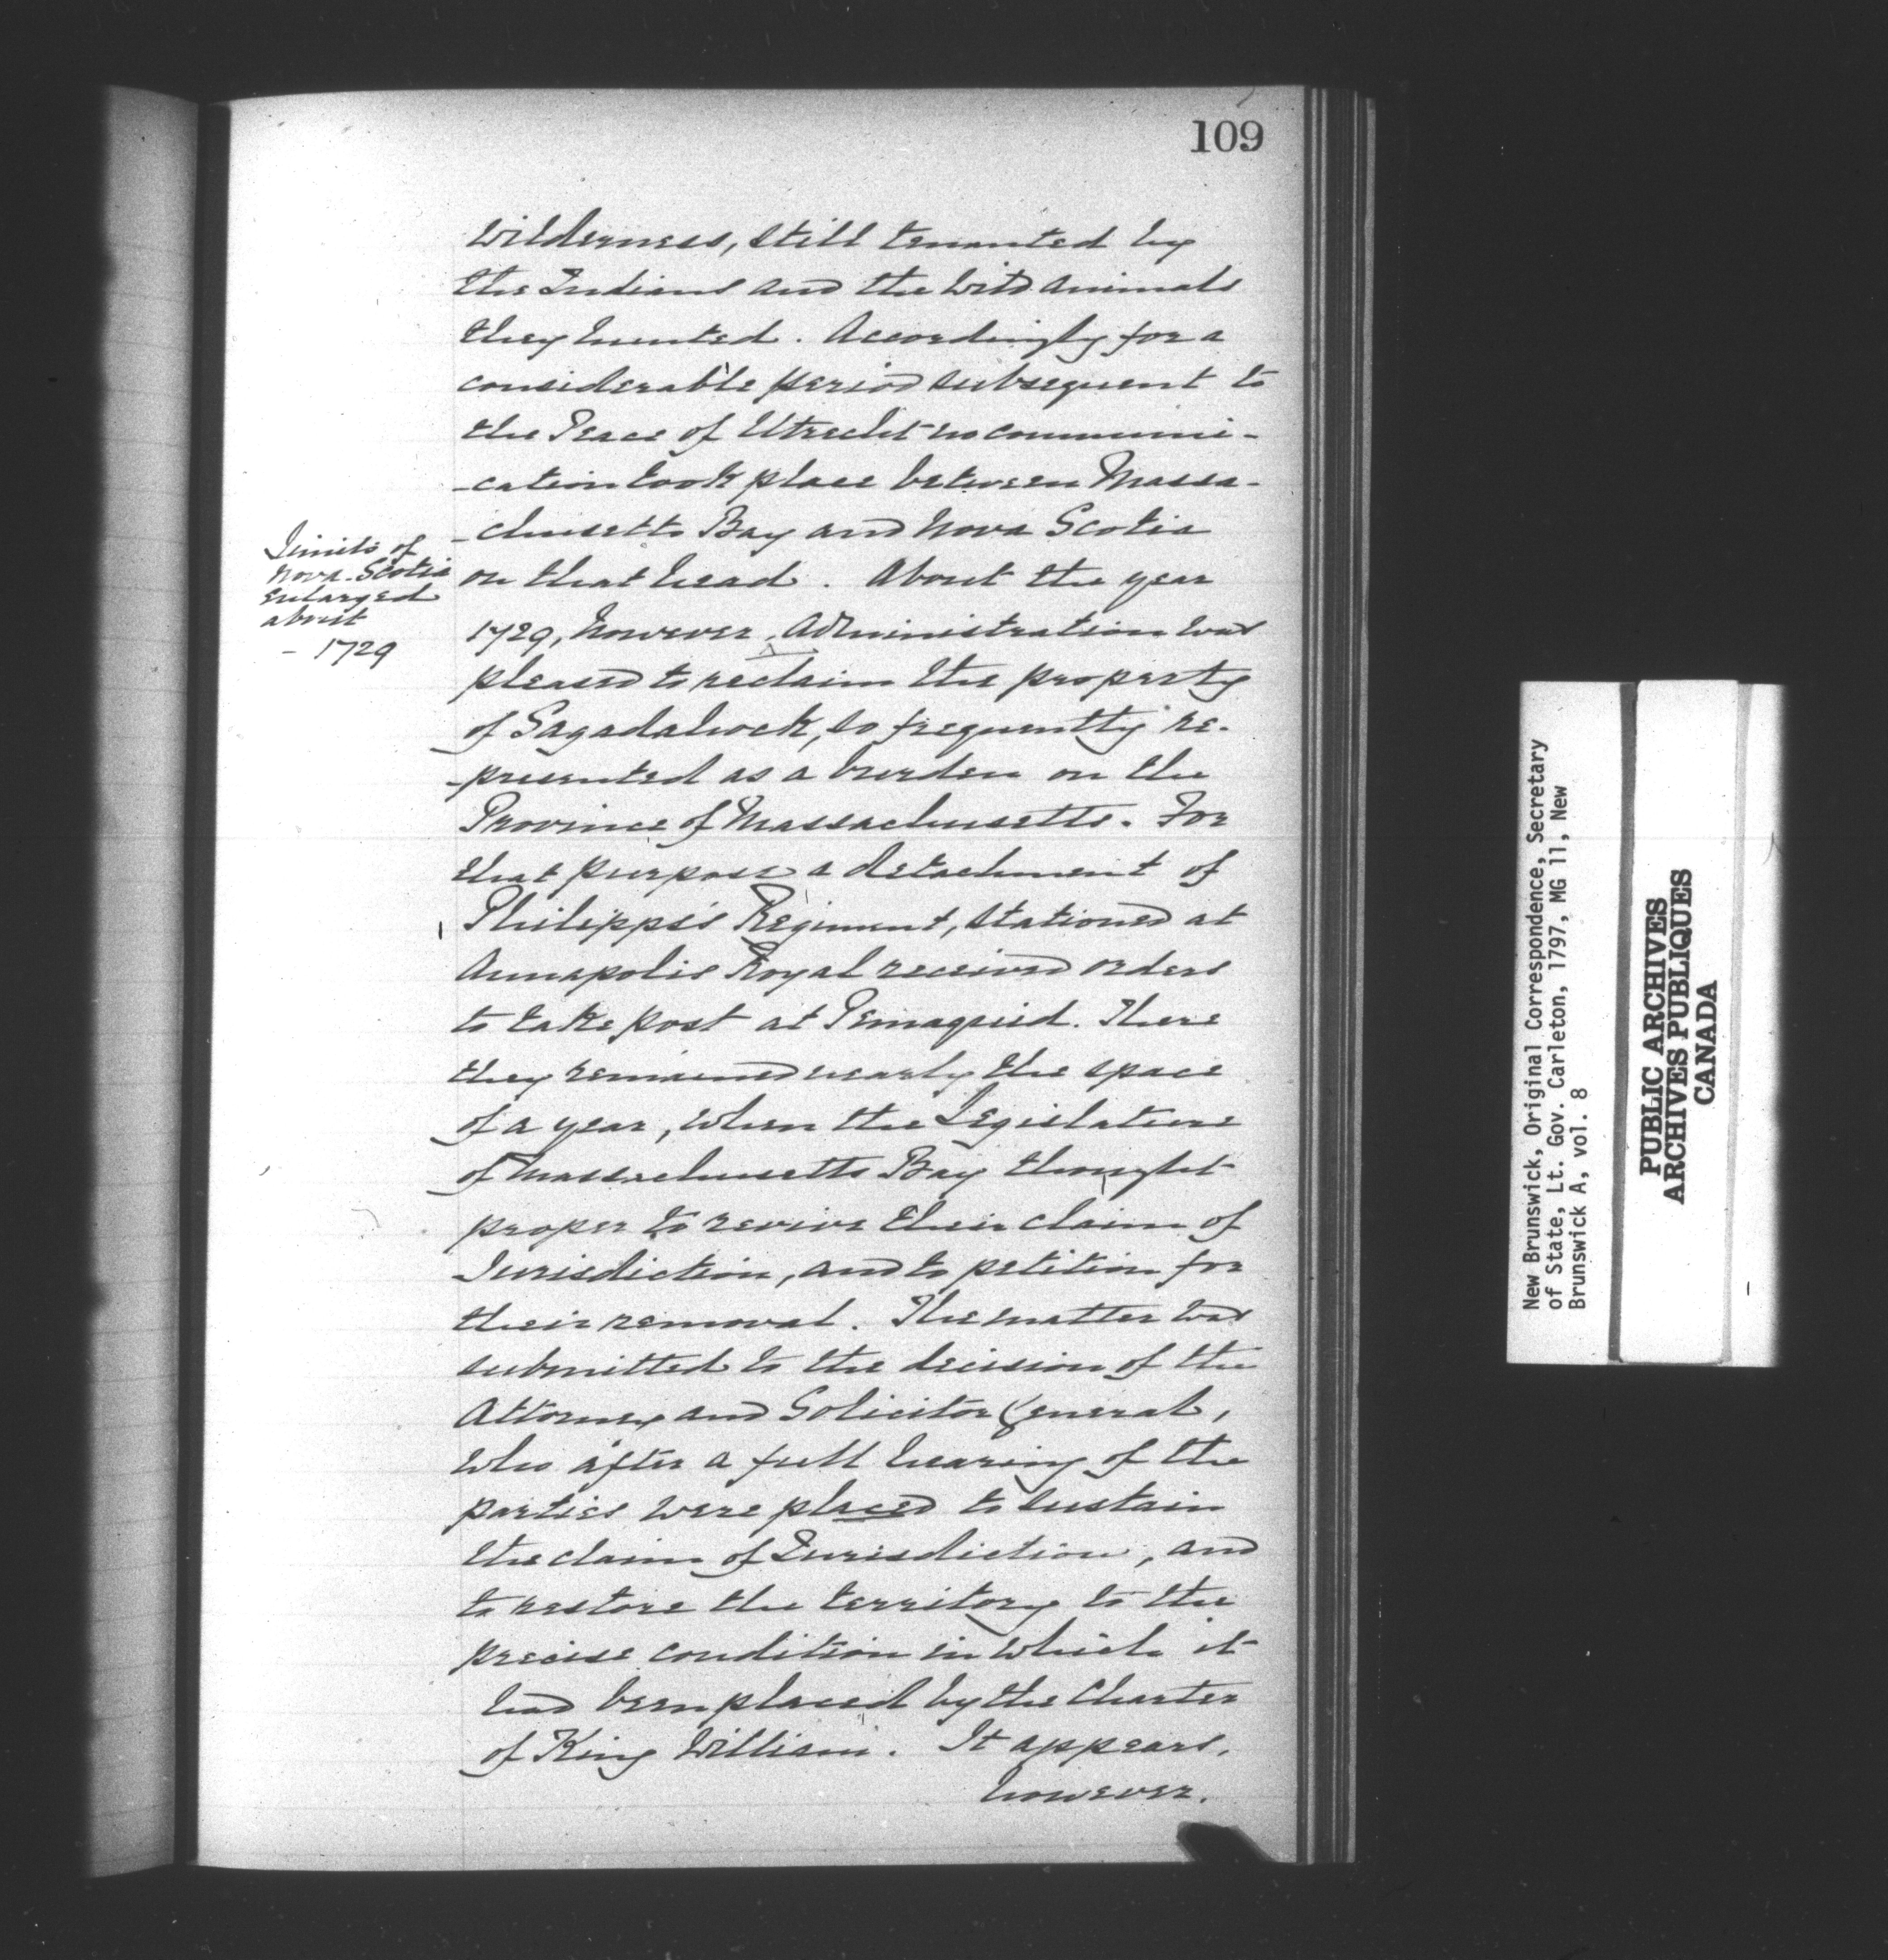 109
wilderness, still tenanted by
the Indians and the wild animals
they hunted. Accordingly for a
considerable period subsequent to
the Peace of Utrecht no communi-
-cation took place between Massa-
-chusetts Bay and Nova Scotia
on that head. About the year
1729, however, Administration was
pleased to reclaim the property
of Sagadahock, so frequently re-
-presented as a burden on the
Province of Massachusetts. For
that purpose a detachment of
Philipps's Regiment, stationed at
Annapolis Royal received orders
to take post at Pemaquid. There
they remained nearly the space
of a year, when the Legislature
of Massachusetts Bay thought
proper to revive their claim of
Jurisdiction, and to petition for
their removal. The matter was
submitted to the decision of the
Attorney and Solicitor General,
who after a full hearing of the
parties were placed to sustain
the claim of Jurisdiction, and
to restore the territory to the
precise condition in which it
had been placed by the Charter
of King William. It appears,
however.
Limits of
Nova-Scotia
enlarged
about
- 1729
New Brunswick, Original Correspondence, Secretary
of State, Lt. Gov. Carleton, 1797, MG 11, New
Brunswick A, vol. 8
PUBLIC ARCHIVES
ARCHIVES PUBLIQUES
CANADA